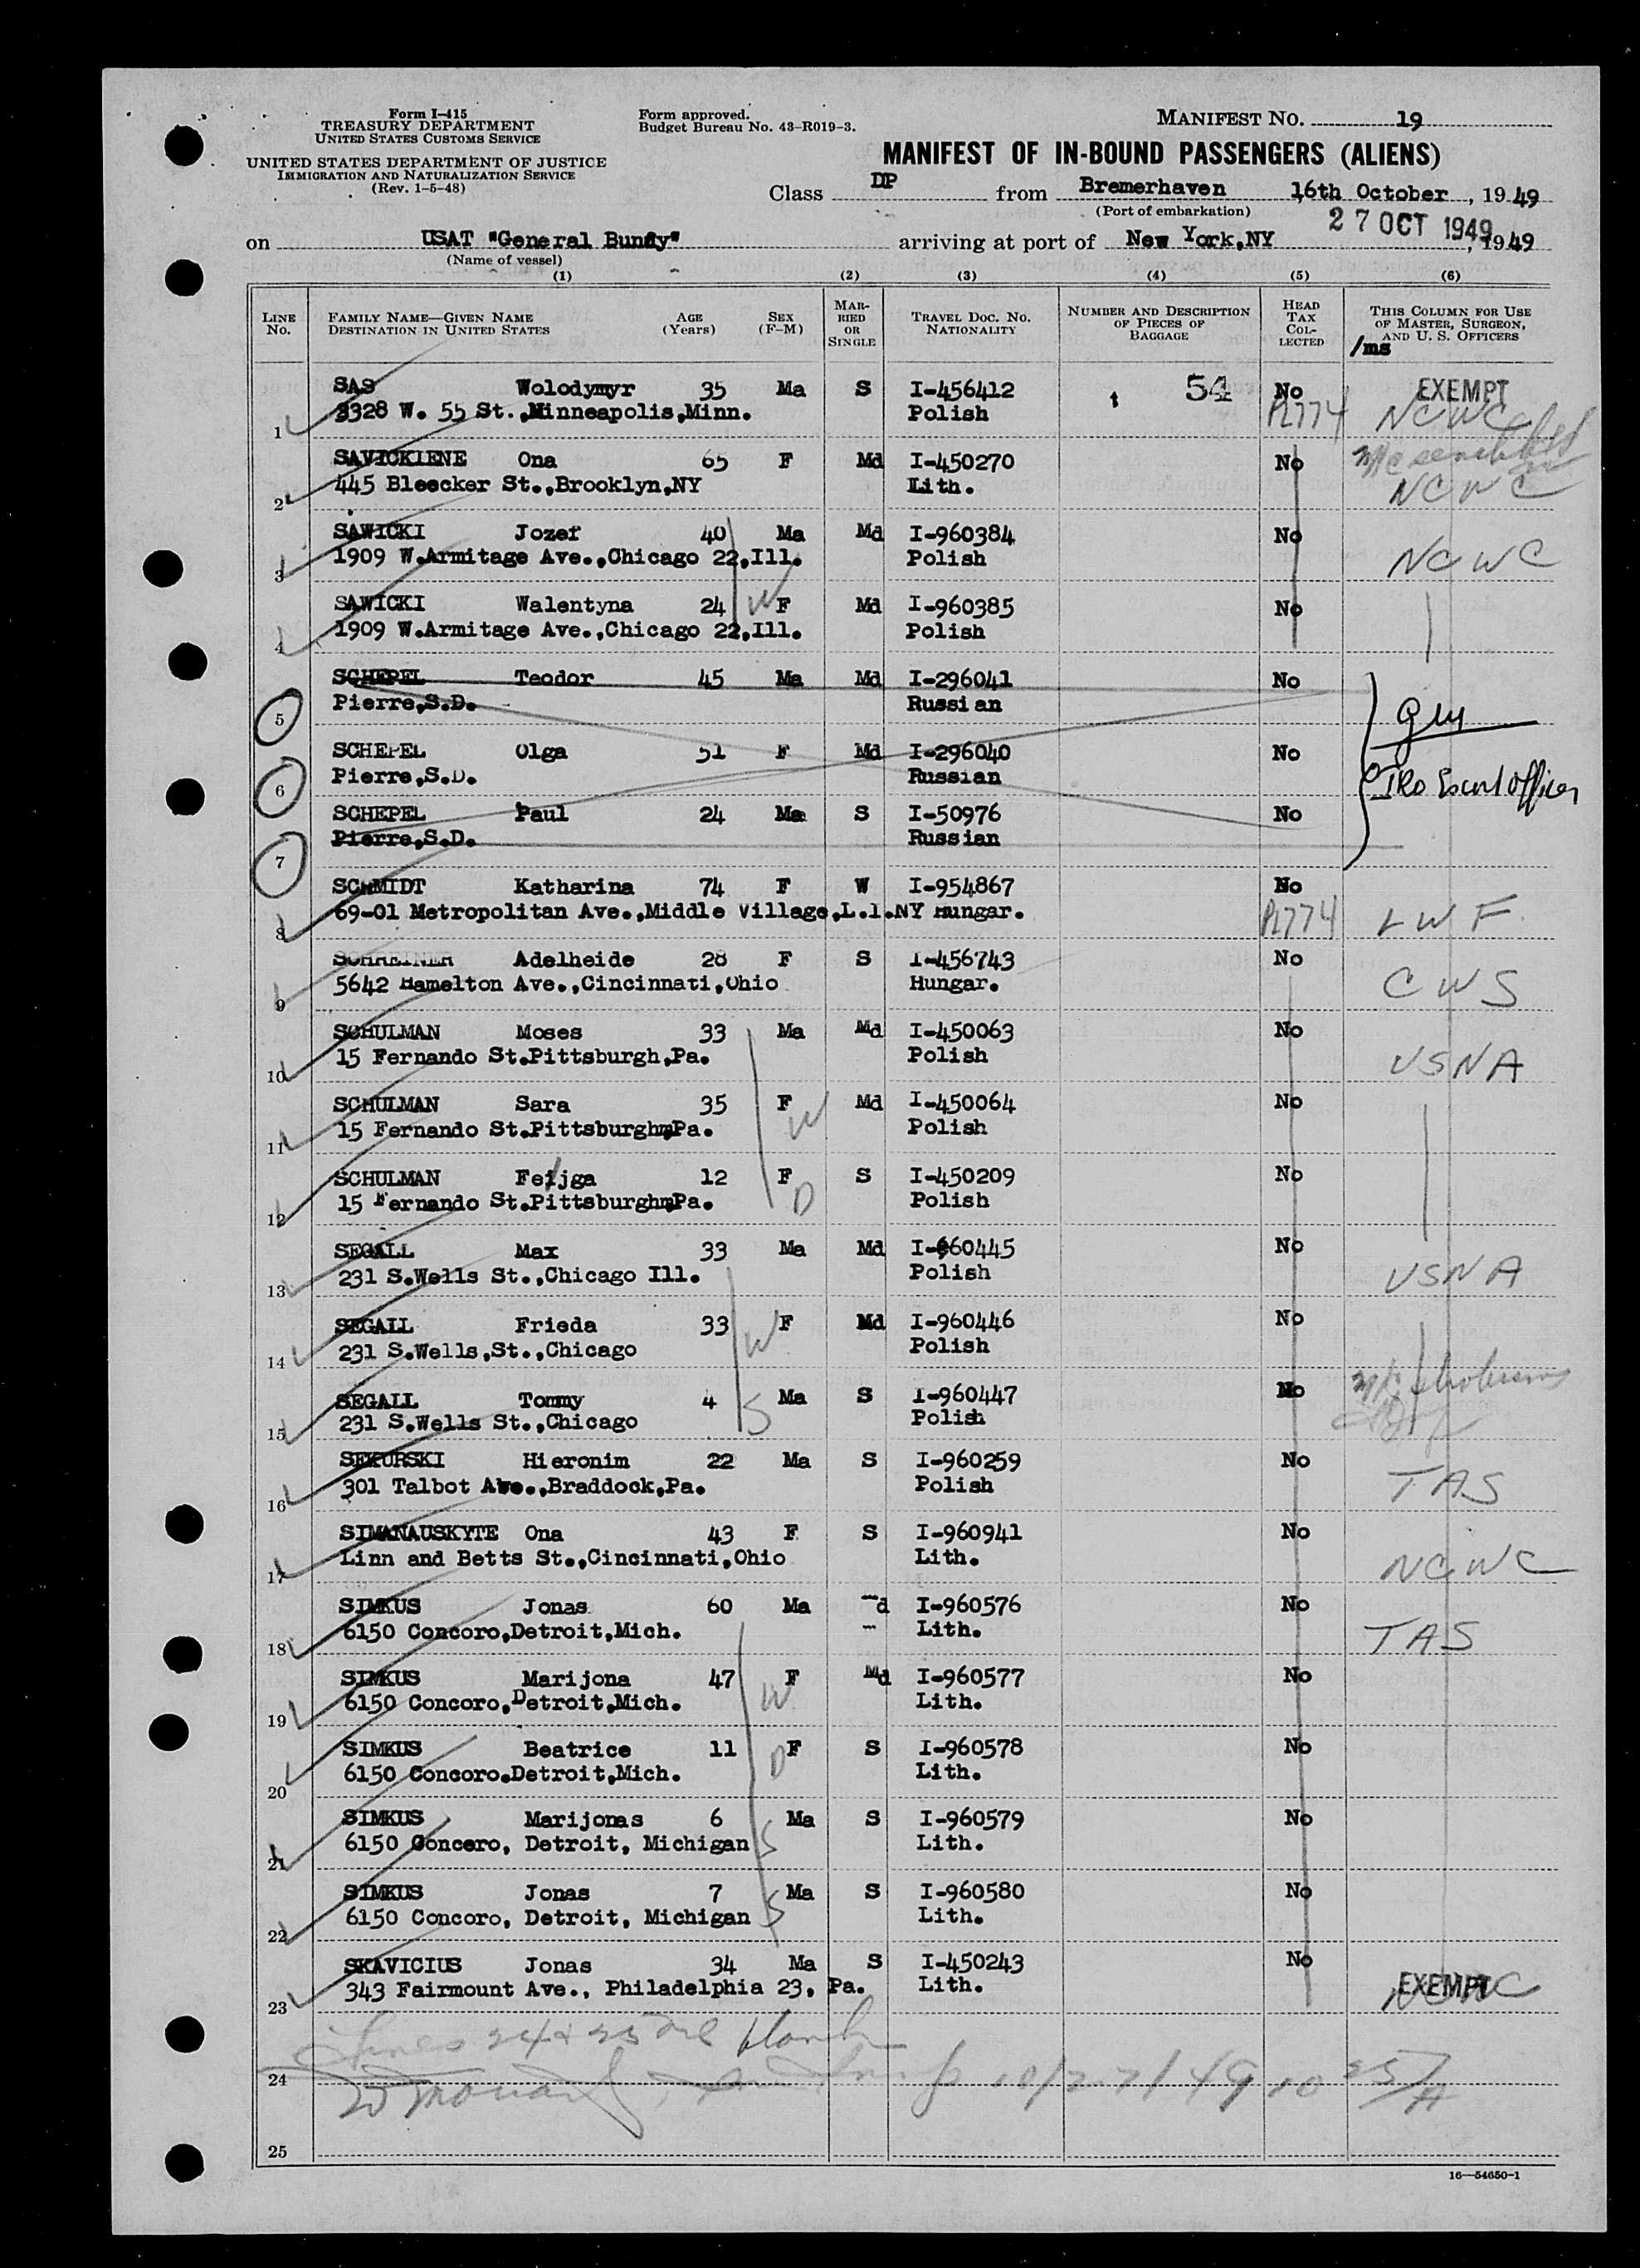 Form I-415
TREASURY DEPARTMENT
UNITED STATES CUSTOMS SERVICE
UNITED STATES DEPARTMENT OF JUSTICE
IMMIGRATION AND NATURALIZATION SERVICE
(Rev. 1-5-48)
Form approved.
Budget Bureau No. 43-R019-3.
MANIFEST NO. 19
MANIFEST OF IN-BOUND PASSENGERS (ALIENS)
Class DP from Bremerhaven 16th October, 1949
(Port of embarkation)
27 OCT 1949
on USAT "General Bundy" arriving at port of New York,NY, 1949
(Name of vessel)
(1) (2) (3) (4) (5) (6)
LINE No. FAMILY NAME—GIVEN NAME DESTINATION IN UNITED STATES AGE (Years) SEX (F-M) MARRIED OR SINGLE TRAVEL DOC. NO. NATIONALITY NUMBER AND DESCRIPTION OF PIECES OF BAGGAGE HEAD TAX COLLECTED THIS COLUMN FOR USE OF MASTER, SURGEON, AND U. S. OFFICERS
/ms
SAS Wolodymyr 35 Ma S I-456412 54 No EXEMPT
1 3328 W. 55 St.,Minneapolis,Minn. Polish PL774 NCWC
SAVICKIENE Ona 65 F Md I-450270 No
2 445 Bleecker St.,Brooklyn,NY Lith. NCWC
SAWICKI Jozef 40 Ma Md I-960384 No
3 1909 W.Armitage Ave.,Chicago 22,Ill. Polish NCWC
SAWICKI Walentyna 24 W F Md I-960385 No
4 1909 W.Armitage Ave.,Chicago 22,Ill. Polish
SCHEPEL Teodor 45 Ma Md I-296041 No
5 Pierre,S.D. Russian
SCHEPEL Olga 51 F Md I-296040 No
6 Pierre,S.D. Russian IRO Escort Officer
SCHEPEL Paul 24 Ma S I-50976 No
7 Pierre,S.D. Russian
SCHMIDT Katharina 74 F W I-954867 No
8 69-01 Metropolitan Ave.,Middle Village,L.I.NY Hungar. PL774 LWF
SCHREINER Adelheide 28 F S I-456743 No
9 5642 Hamelton Ave.,Cincinnati,Ohio Hungar. CWS
SCHULMAN Moses 33 Ma Md I-450063 No
10 15 Fernando St.Pittsburgh,Pa. Polish USNA
SCHULMAN Sara 35 F Md I-450064 No
11 15 Fernando St.PittsburghmPa. W Polish
SCHULMAN Feijga 12 F S I-450209 No
12 15 Fernando St.PittsburghmPa. D Polish
SEGALL Max 33 Ma Md I-960445 No
13 231 S.Wells St.,Chicago Ill. Polish USNA
SEGALL Frieda 33 W F Md I-960446 No
14 231 S.Wells,St.,Chicago Polish
SEGALL Tommy 4 Ma S I-960447 No
15 231 S.Wells St.,Chicago S Polish
SEKURSKI Hieronim 22 Ma S I-960259 No
16 301 Talbot Ave.,Braddock,Pa. Polish TAS
SIMANAUSKYTE Ona 43 F S I-960941 No
17 Linn and Betts St.,Cincinnati,Ohio Lith. NCWC
SIMKUS Jonas 60 Ma Md I-960576 No
18 6150 Concoro,Detroit,Mich. Lith. TAS
SIMKUS Marijona 47 F Md I-960577 No
19 6150 Concoro,Detroit,Mich. W Lith.
SIMKUS Beatrice 11 D F S I-960578 No
20 6150 Concoro.Detroit,Mich. Lith.
SIMKUS Marijonas 6 Ma S I-960579 No
21 6150 Concero, Detroit, Michigan S Lith.
SIMKUS Jonas 7 Ma S I-960580 No
22 6150 Concoro, Detroit, Michigan S Lith.
SKAVICIUS Jonas 34 Ma S I-450243 No
23 343 Fairmount Ave., Philadelphia 23, Pa. Lith. EXEMPT NCWC
Lines 24 & 25 are blank
24 10/27/49 10 25/A
25
16—54650-1